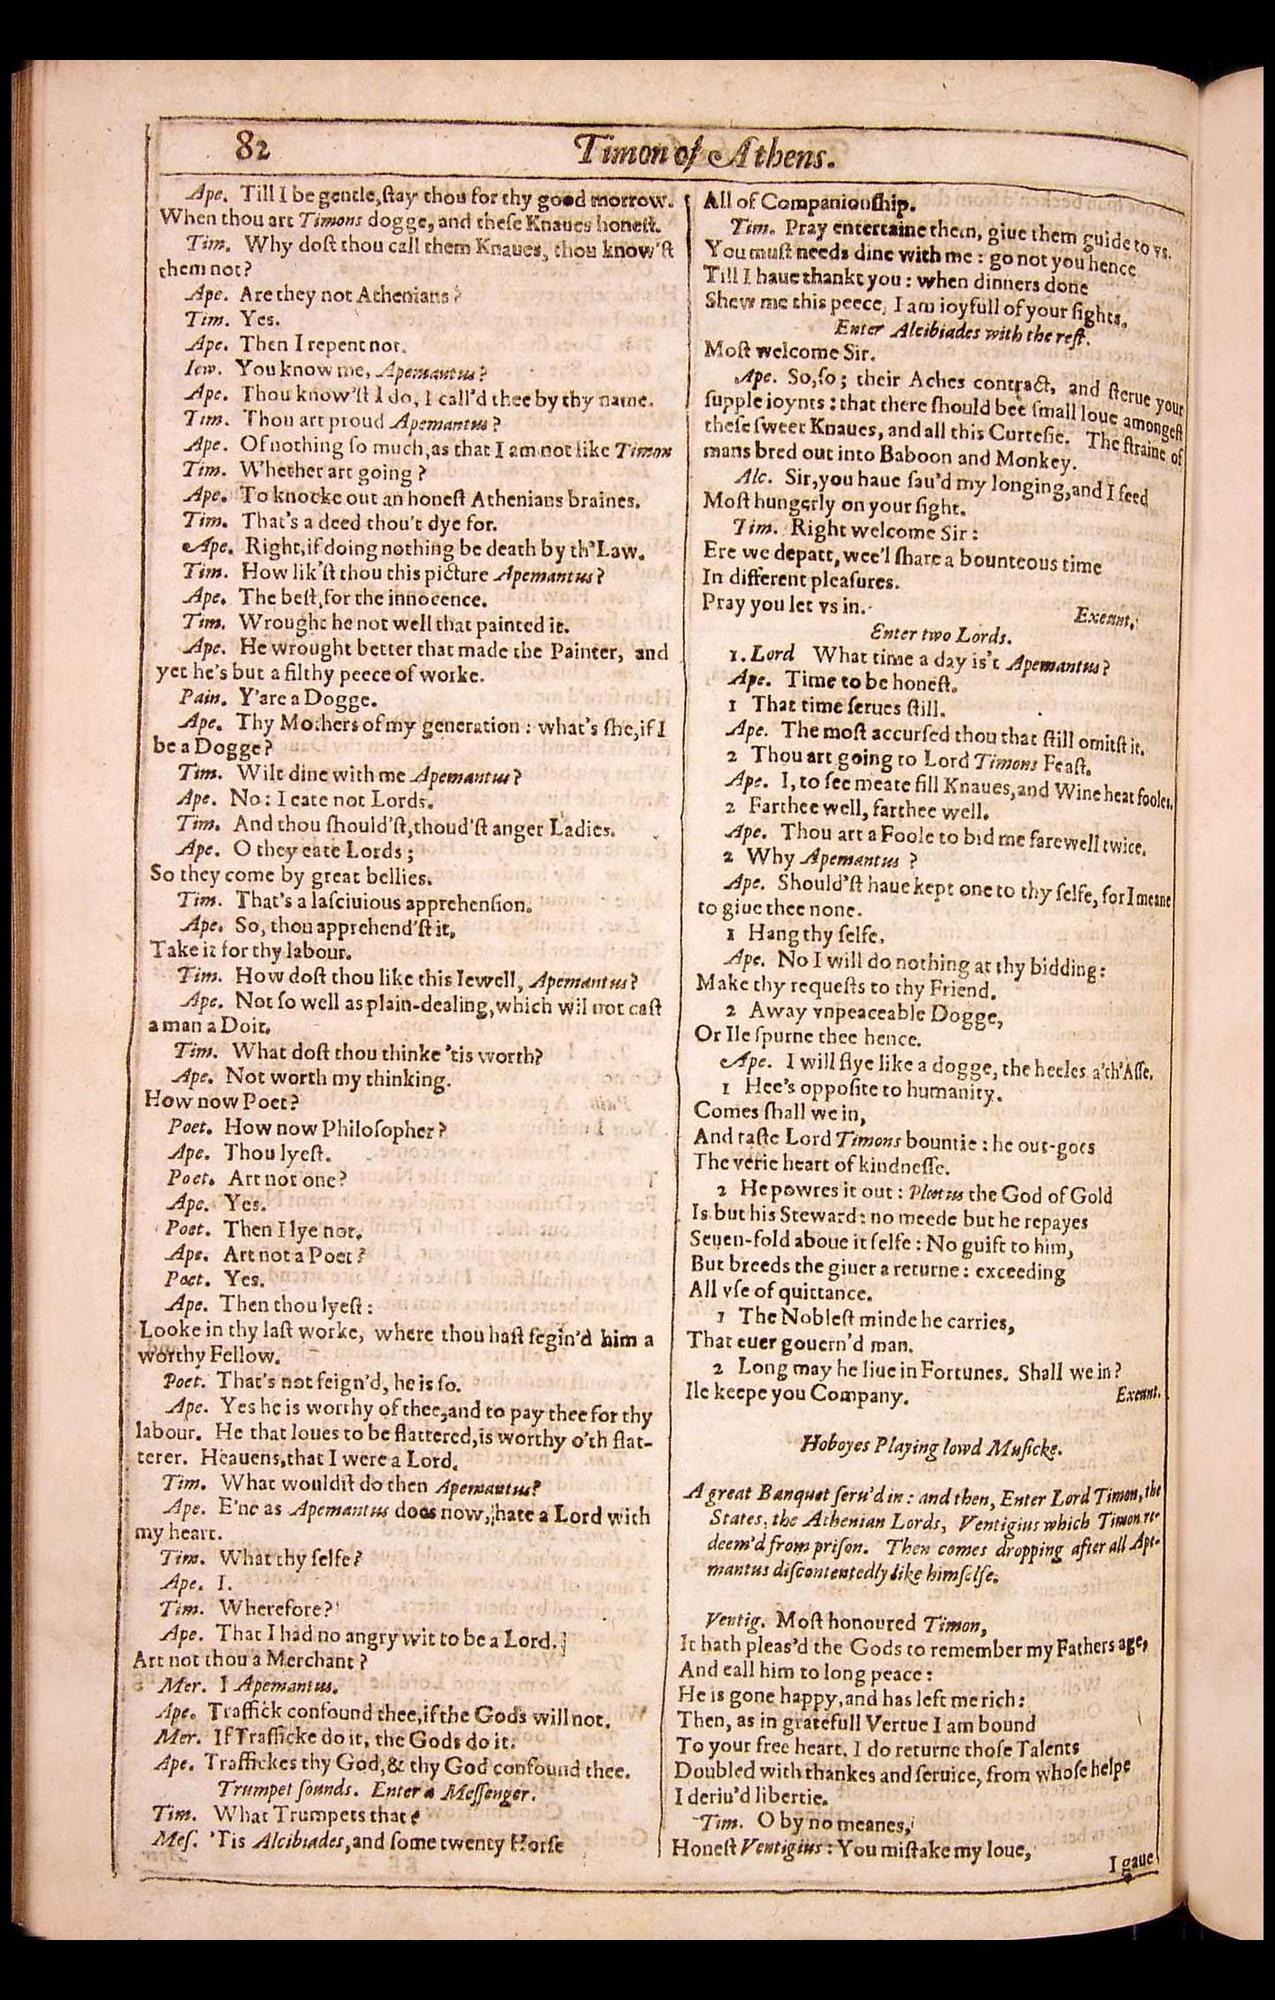 82
Timon of Athens.
Ape. Till I be gentle, ſtay thou for thy good morrow.
When thou art Timons dogge, and theſe Knaues honeſt.
Tim. Why doſt thou call them Knaues, thou know'ſt
them not?
Ape. Are they not Athenians?
Tim. Yes.
Ape. Then I repent not.
Iew. You know me, Apemantus?
Ape. Thou know'ſt I do, I call'd thee by thy name.
Tim. Thou art proud Apemantus?
Ape. Of nothing ſo much, as that I am not like Timon
Tim. Whether art going?
Ape. To knocke out an honeſt Athenians braines.
Tim. That's a deed thou't dye for.
Ape. Right, if doing nothing be death by th'Law.
Tim. How lik'ſt thou this picture Apemantus?
Ape. The beſt, for the innocence.
Tim. Wrought he not well that painted it.
Ape. He wrought better that made the Painter, and
yet he's but a filthy peece of worke.
Pain. Y'are a Dogge.
Ape. Thy Mothers of my generation: what's ſhe, if I
be a Dogge?
Tim. Wilt dine with me Apemantus?
Ape. No: I eate not Lords.
Tim. And thou ſhould'ſt, thoud'ſt anger Ladies.
Ape. O they eate Lords;
So they come by great bellies.
Tim. That's a laſciuious apprehenſion.
Ape. So, thou apprehend'ſt it,
Take it for thy labour.
Tim. How doſt thou like this Iewell, Apemantus?
Ape. Not ſo well as plain-dealing, which wil not caſt
a man a Doit.
Tim. What doſt thou thinke 'tis worth?
Ape. Not worth my thinking.
How now Poet?
Poet. How now Philoſopher?
Ape. Thou lyeſt.
Poet. Art not one?
Ape. Yes.
Poet. Then I lye not.
Ape. Art not a Poet?
Poet. Yes.
Ape. Then thou lyeſt:
Looke in thy laſt worke, where thou haſt fegin'd him a
worthy Fellow.
Poet. That's not feign'd, he is ſo.
Ape. Yes he is worthy of thee, and to pay thee for thy
labour. He that loues to be flattered, is worthy o'th flat-
terer. Heauens, that I were a Lord.
Tim. What wouldſt do then Apemantus?
Ape. E'ne as Apemantus does now, hate a Lord with
my heart.
Tim. What thy ſelfe?
Ape. I.
Tim. Wherefore?
Ape. That I had no angry wit to be a Lord.
Art not thou a Merchant?
Mer. I Apemantus.
Ape. Traffick confound thee, if the Gods will not.
Mer. If Trafficke do it, the Gods do it.
Ape. Traffickes thy God, & thy God confound thee.
Trumpet ſounds. Enter a Meſſenger.
Tim. What Trumpets that?
Meſ. 'Tis Alcibiades, and ſome twenty Horſe
All of Companionſhip.
Tim. Pray entertaine them, giue them guide to vs.
You muſt needs dine with me: go not you hence
Till I haue thankt you: when dinners done
Shew me this peece, I am ioyfull of your ſights.
Enter Alcibiades with the reſt.
Moſt welcome Sir.
Ape. So, ſo; their Aches contract, and ſterue your
ſupple ioynts: that there ſhould bee ſmall loue amongeſt
theſe ſweet Knaues, and all this Curteſie. The ſtraine of
mans bred out into Baboon and Monkey.
Alc. Sir, you haue ſau'd my longing, and I feed
Moſt hungerly on your ſight.
Tim. Right welcome Sir:
Ere we depatt, wee'l ſhare a bounteous time
In different pleaſures.
Pray you let vs in.
Exeunt.
Enter two Lords.
1. Lord What time a day is't Apemantus?
Ape. Time to be honeſt.
1 That time ſerues ſtill.
Ape. The moſt accurſed thou that ſtill omitſt it.
2 Thou art going to Lord Timons Feaſt.
Ape. I, to ſee meate fill Knaues, and Wine heat fooles.
2 Farthee well, farthee well.
Ape. Thou art a Foole to bid me farewell twice.
2 Why Apemantus ?
Ape. Should'ſt haue kept one to thy ſelfe, for I meane
to giue thee none.
1 Hang thy ſelfe.
Ape. No I will do nothing at thy bidding:
Make thy requeſts to thy Friend.
2 Away vnpeaceable Dogge,
Or Ile ſpurne thee hence.
Ape. I will flye like a dogge, the heeles a'th'Aſſe.
1 Hee's oppoſite to humanity.
Comes ſhall we in,
And taſte Lord Timons bountie: he out-goes
The verie heart of kindneſſe.
2 He powres it out: Plutus the God of Gold
Is but his Steward: no meede but he repayes
Seuen-fold aboue it ſelfe: No guift to him,
But breeds the giuer a returne: exceeding
All vſe of quittance.
1 The Nobleſt minde he carries,
That euer gouern'd man.
2 Long may he liue in Fortunes. Shall we in?
Ile keepe you Company.
Exeunt.
Hoboyes Playing lowd Muſicke.
A great Banquet ſeru'd in: and then, Enter Lord Timon, the
States, the Athenian Lords, Ventigius which Timon re-
deem'd from priſon. Then comes dropping after all Ape-
mantus diſcontentedly like himſelfe.
Ventig. Moſt honoured Timon,
It hath pleas'd the Gods to remember my Fathers age,
And call him to long peace:
He is gone happy, and has left me rich:
Then, as in gratefull Vertue I am bound
To your free heart, I do returne thoſe Talents
Doubled with thankes and ſeruice, from whoſe helpe
I deriu'd libertie.
Tim. O by no meanes,
Honeſt Ventigius: You miſtake my loue,
I gaue